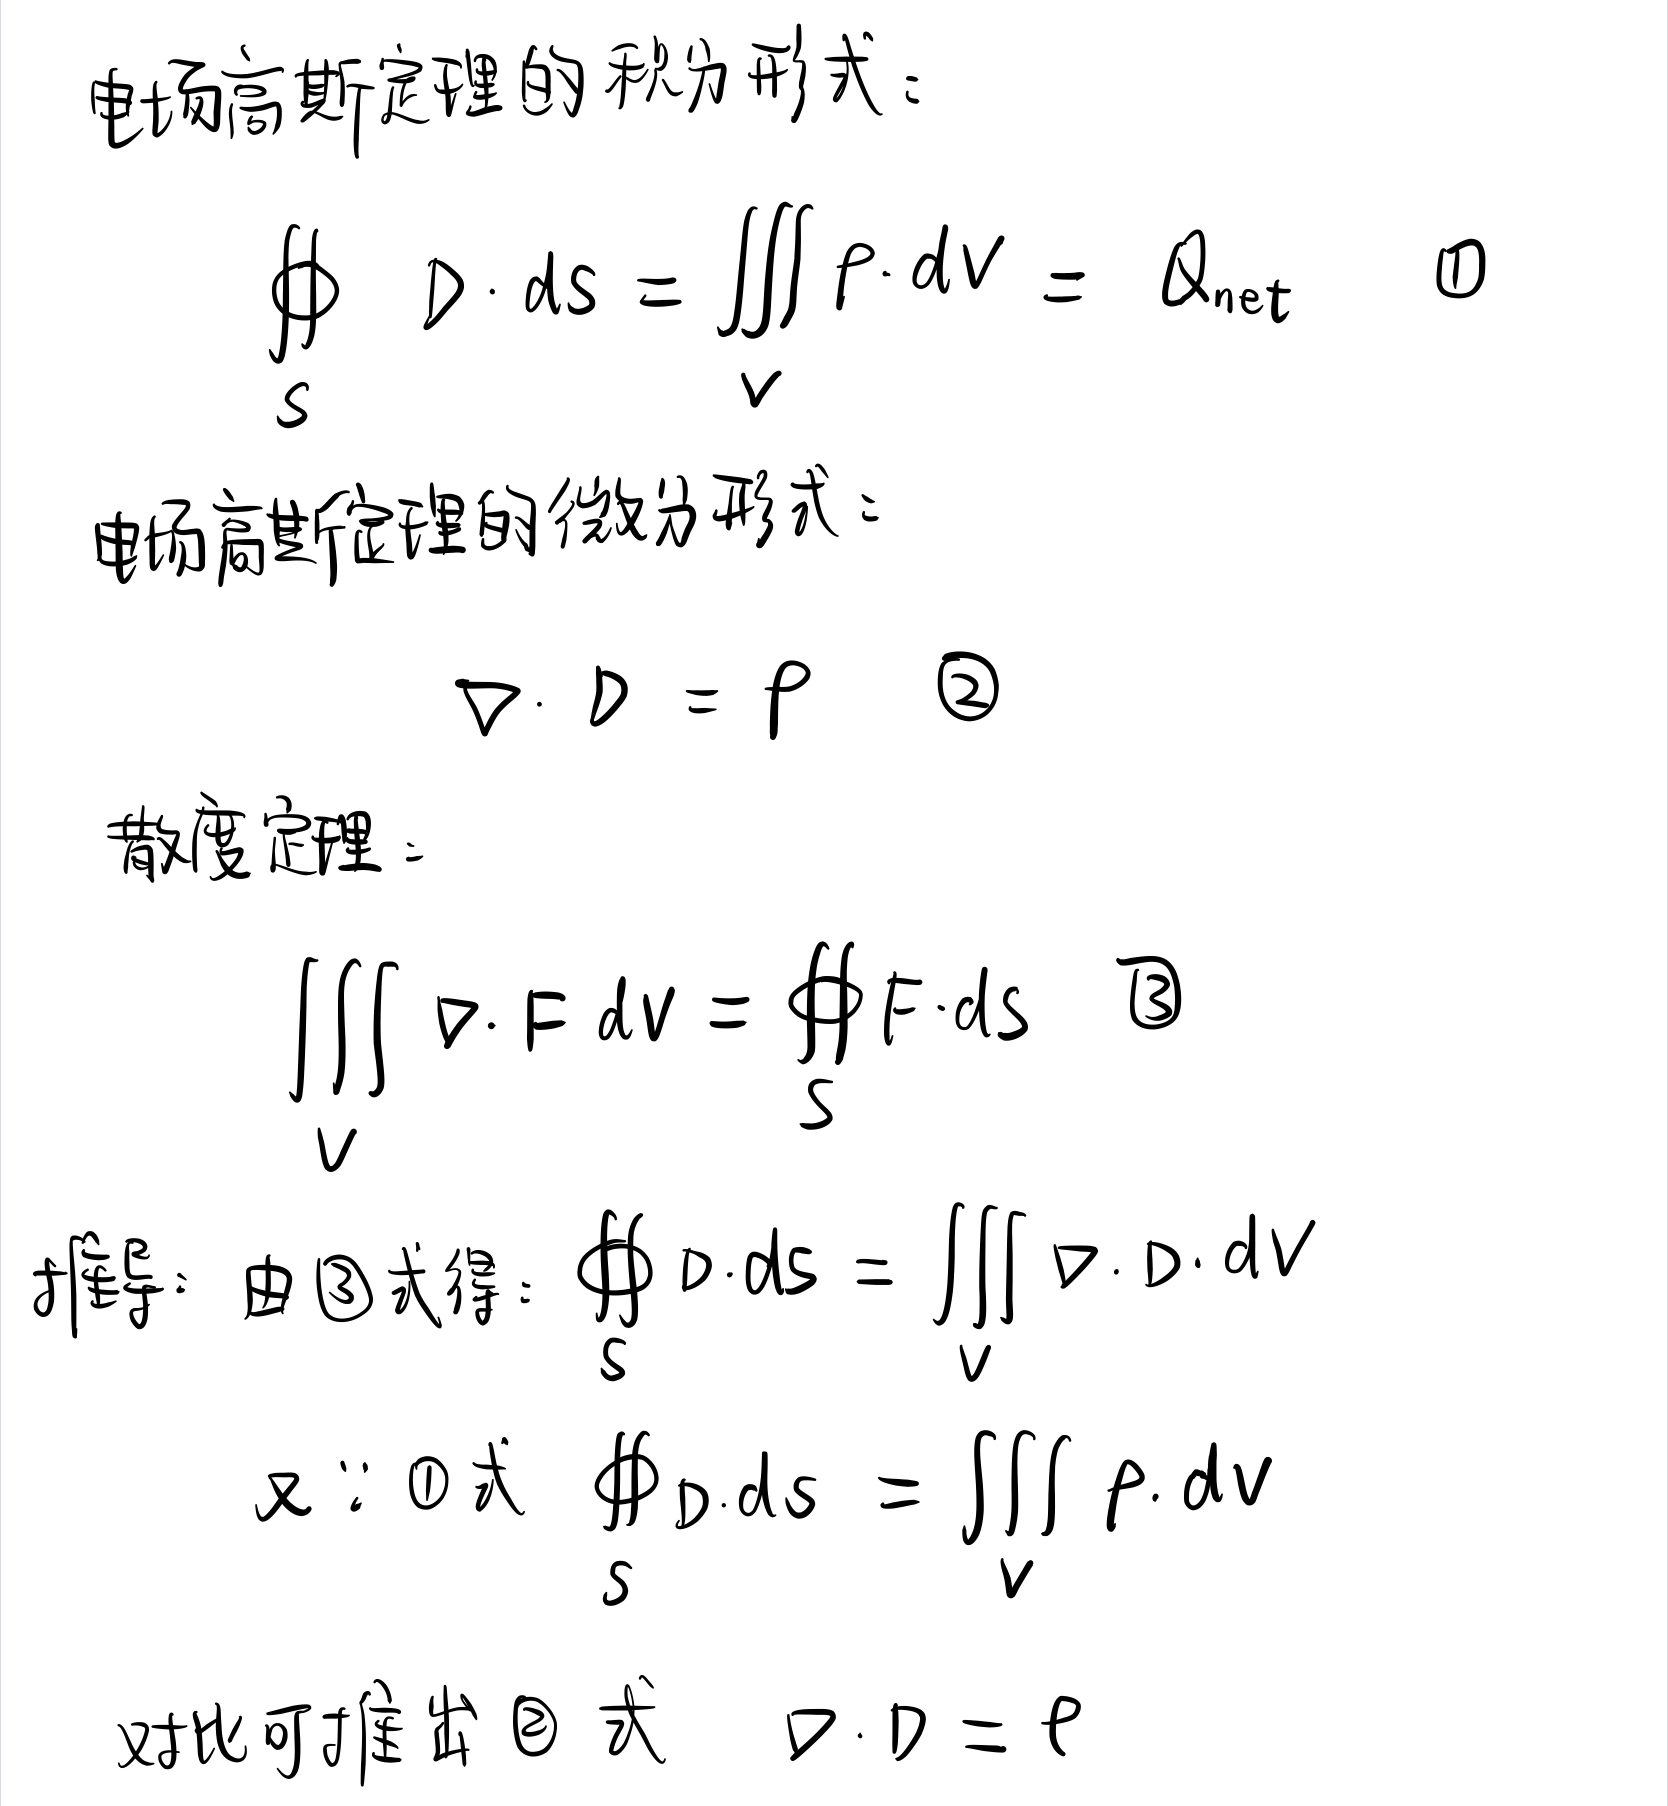 电场高斯定理的积分形式：
∯ D · ds = ∭ ρ · dV = Qnet ①
S V
电场高斯定理的微分形式：
∇ · D = ρ ②
散度定理：
∭ ∇ · F dV = ∯ F · ds ③
V S
推导：由③式得：∯ D · ds = ∭ ∇ · D · dV
S V
又∵ ①式 ∯ D · ds = ∭ ρ · dV
S V
对比可推出②式 ∇ · D = ρ